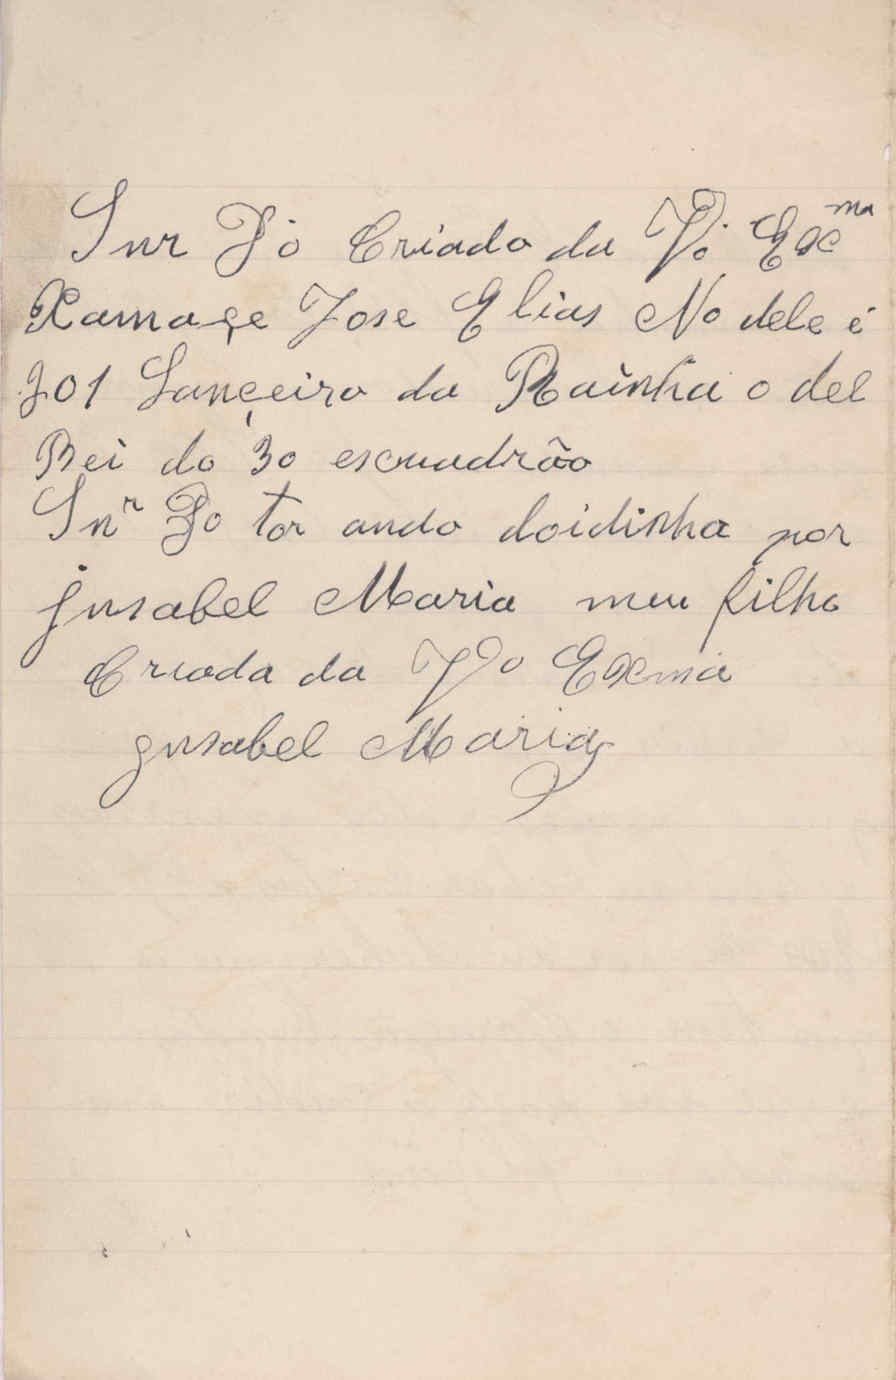 Snr Do Criado da Vo Excma
Xamaçe Jose Elias No dele é
301 Lançeiro da Rainha o del
Rei do 3o escuadrão
Snr Do tor ando doidinha por
Jnsabel Maria meu filho
Criada da Vo Exma
Jnsabel Maria